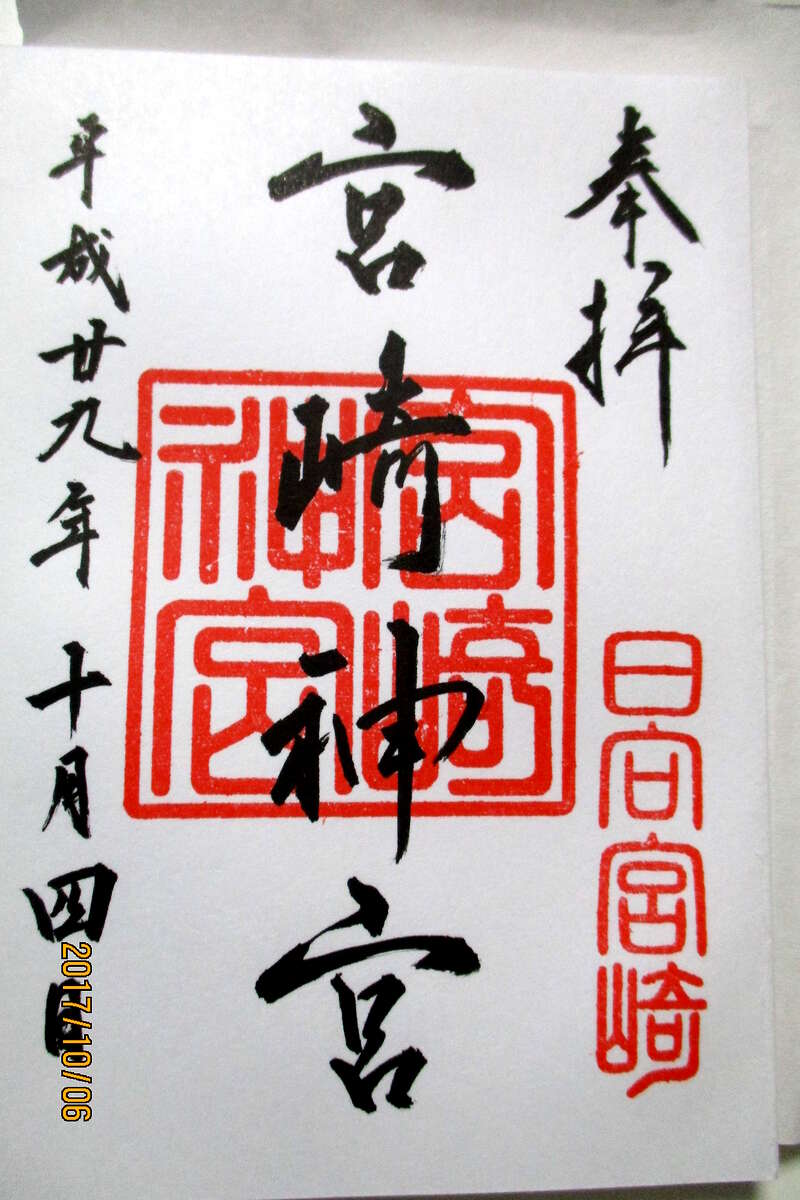 奉拝
日向宮崎
宮崎神宮
宮崎神宮
平成廿九年十月四日
2017/10/06